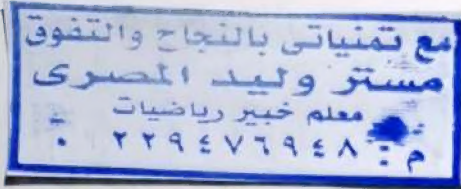 مع تمنياتى بالنجاح والتفوق
مستر وليد المصرى
معلم خبير رياضيات
م : ٢٢٩٤٧٦٩٤٨ ٠